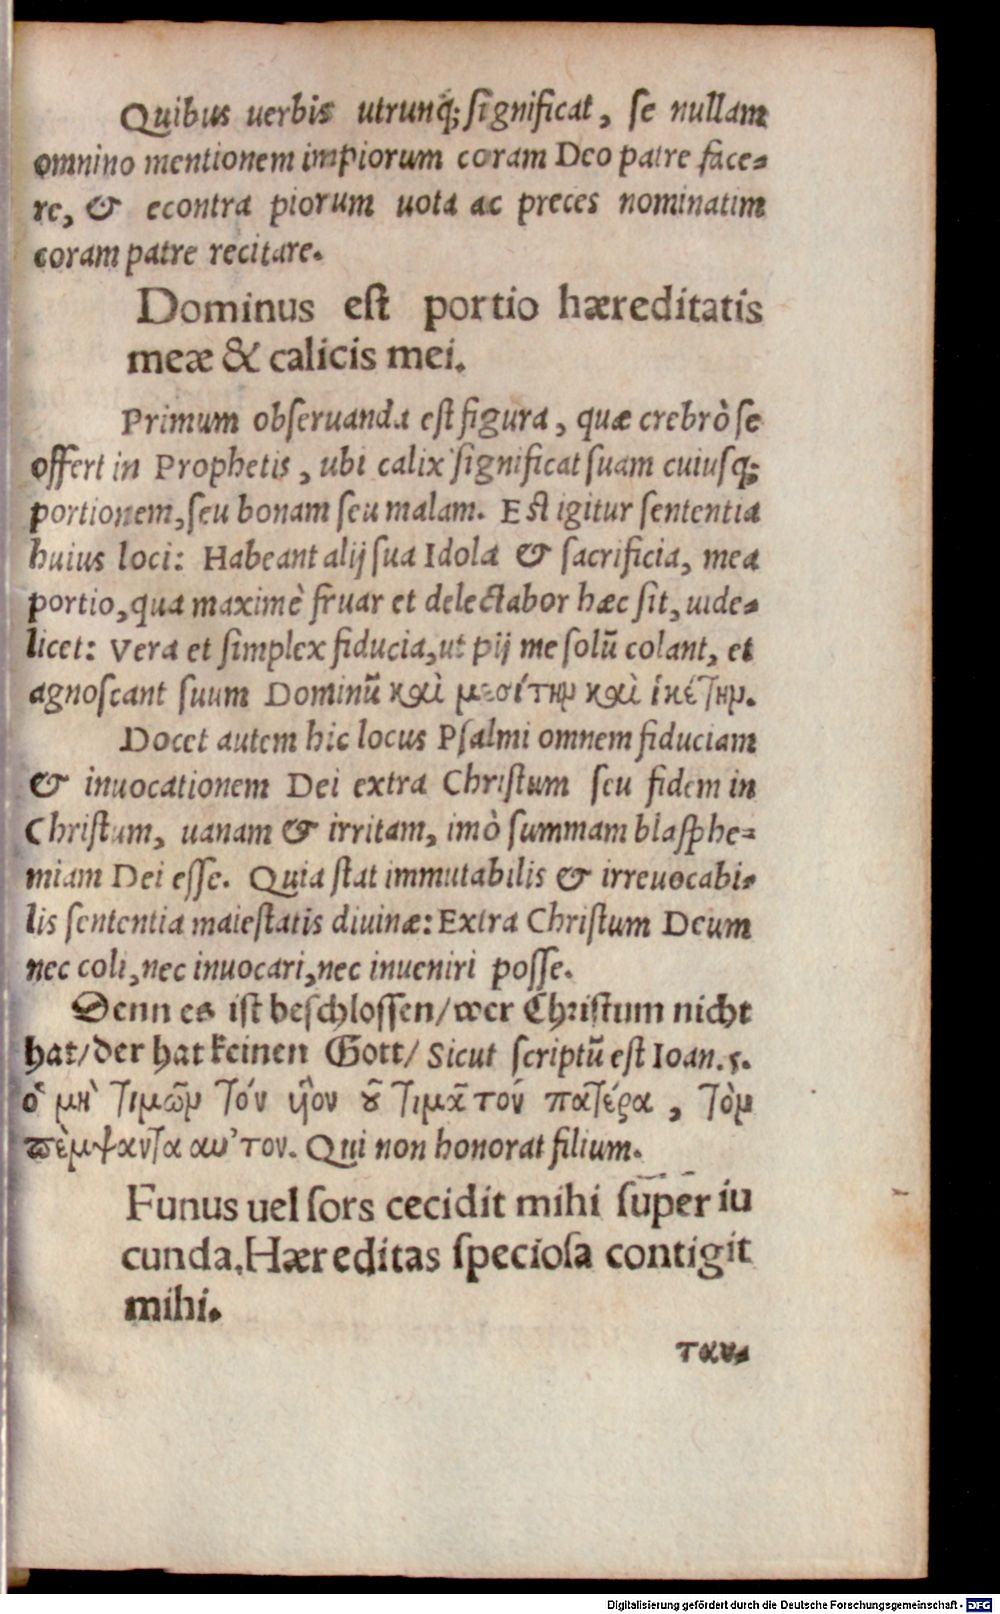 Quibus uerbis utrunq́; ſignificat, ſe nullam
omnino mentionem impiorum coram Deo patre face-
re, & econtra piorum uota ac preces nominatim
coram patre recitare.
Dominus eſt portio hæreditatis
meæ & calicis mei.
Primum obſeruanda eſt figura, quæ crebrò ſe
offert in Prophetis, ubi calix ſignificat ſuam cuiuſq;
portionem, ſeu bonam ſeu malam. Eſt igitur ſententia
huius loci: Habeant alij ſua Idola & ſacrificia, mea
portio, qua maximè fruar et delectabor hæc ſit, uide-
licet: Vera et ſimplex fiducia, ut pij me ſolū colant, et
agnoſcant ſuum Dominū καὶ μεσίτην καὶ ἱκέτην.
Docet autem hic locus Pſalmi omnem fiduciam
& inuocationem Dei extra Chriſtum ſeu fidem in
Chriſtum, uanam & irritam, imò ſummam blaſphe-
miam Dei eſſe. Quia ſtat immutabilis & irreuocabi-
lis ſententia maieſtatis diuinæ: Extra Chriſtum Deum
nec coli, nec inuocari, nec inueniri poſſe.
Denn es iſt beſchloſſen/ wer Chriſtum nicht
hat/ der hat keinen Gott/ Sicut ſcriptū eſt Ioan. 5.
ὁ μὴ τιμῶν τόν ὑὸν οὐ τιμᾶ τόν πατέρα, τὸν
πέμψαντα αυ’τον. Qui non honorat filium.
Funus uel ſors cecidit mihi ſuper iu
cunda, Hæreditas ſpecioſa contigit
mihi.
ταυ-
Digitalisierung gefördert durch die Deutsche Forschungsgemeinschaft - DFG